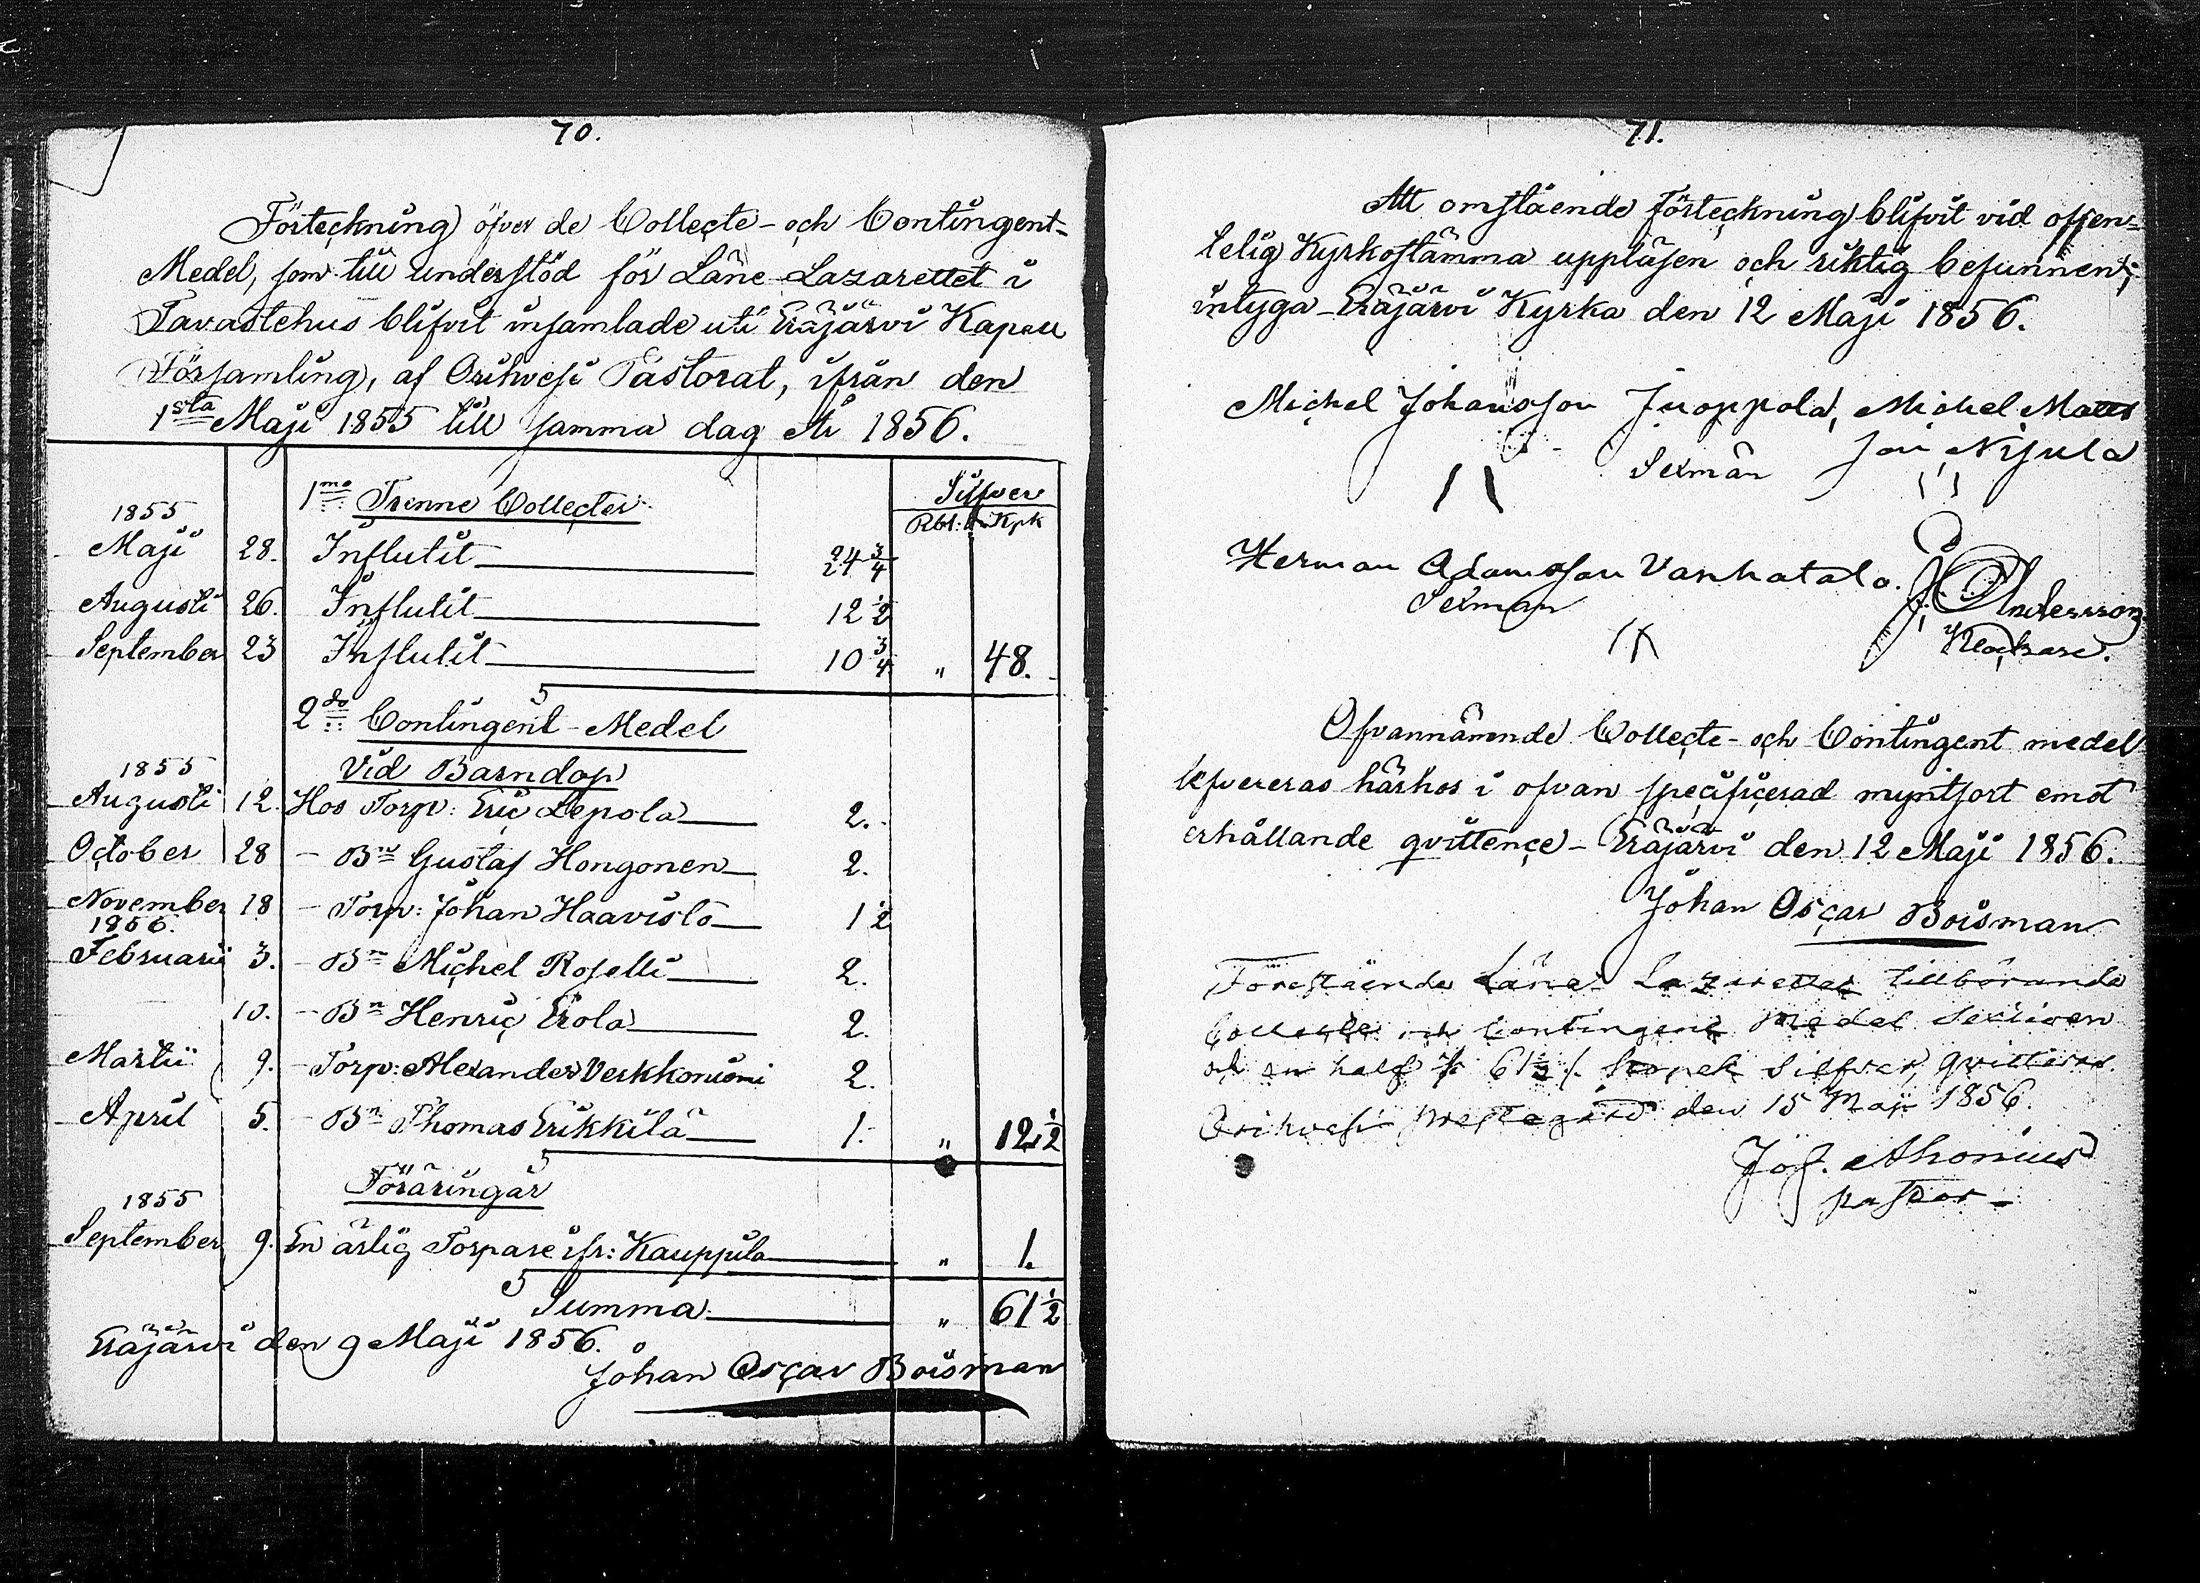 70.
Förteckning öfver de Collecte- och Contingent-
Medel, som till understöd för Läne Lazarettet i
Tavastehus blifvit insamlade uti Eräjärvi Kapell
Församling, af Orihvesi Pastorat, ifrån den
1sta Maji 1855 till samma dag 1856.
1mo Trenne Collecter Silfver
1855 Rbl: Kpk
Maji 28. Influtit 24 3/4
Augusti 26. Influtit 12 1/2
September 23 Influtit 10 3/4 " 48.
2do Contingent-Medel
Vid Barndop
1855
Augusti 12. Hos Torp: Eric Lepola 2.
October 28 - Bn Gustaf Hongonen 2.
November 18 - Torp: Johan Haavisto 1 1/2
1856.
Februarii 3. - Bn Michel Roselli 2.
10. - Bn Henric Erola 2.
Martii 9. - Torp: Alexander Verkkoniemi 2.
April 5. - Bn Thomas Erikkilä 1. " 12 1/2
Föräringar
1855
September 9. En ärlig Torpare ifr: Kauppila " 1.
Summa " 61 1/2
Eräjärvi den 9 Maji 1856.
Johan Oscar Boisman
71.
Att omstående förteckning blifvit vid offen=
telig Kyrkostämma uppläsen och riktig befunnen;
intyga - Eräjärvi Kyrka den 12 Maji 1856.
Michel Johansson Juoppola, Michel Matts
Sexman son Nijula
Herman Adamsson Vanhatalo. Andersson
Sexman Klockare.
Ofvannämnde Collecte- och Contingent medel
lefvereras härhos i ofvan specificerad myntsort emot
erhållande qvittence - Eräjärvi den 12 Maji 1856.
Johan Oscar Boisman
Förestående Läne Lazarettet tillhörande
Collecte och Contingent Medel Sextioen
och en half % 61 1/2 /. kopek Silfver, qvitteras.
Orihvesi prestegård den 15 Maji 1856.
Jos. Ahonius
pastor -